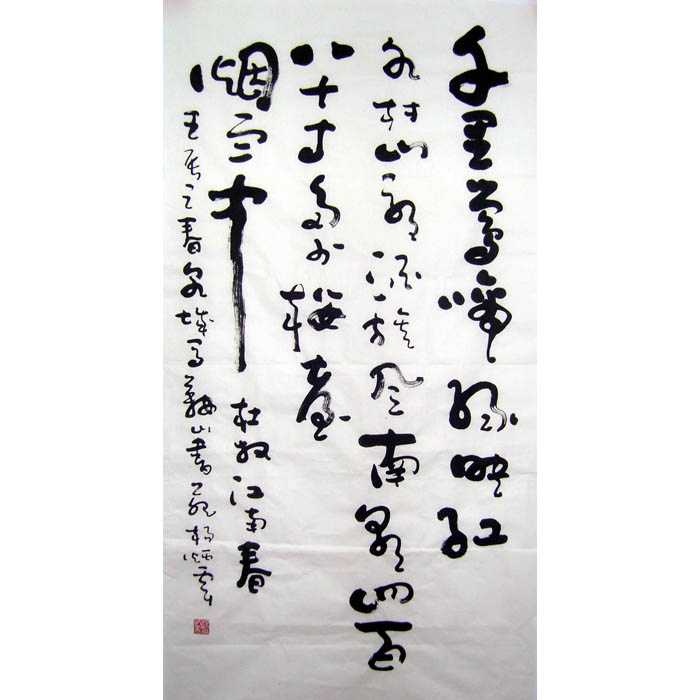 千里莺啼绿映红
水村山郭酒旗风南朝四百
八十寺多少楼台
烟雨中 杜牧江南春
壬辰之春泉城马鞍山書